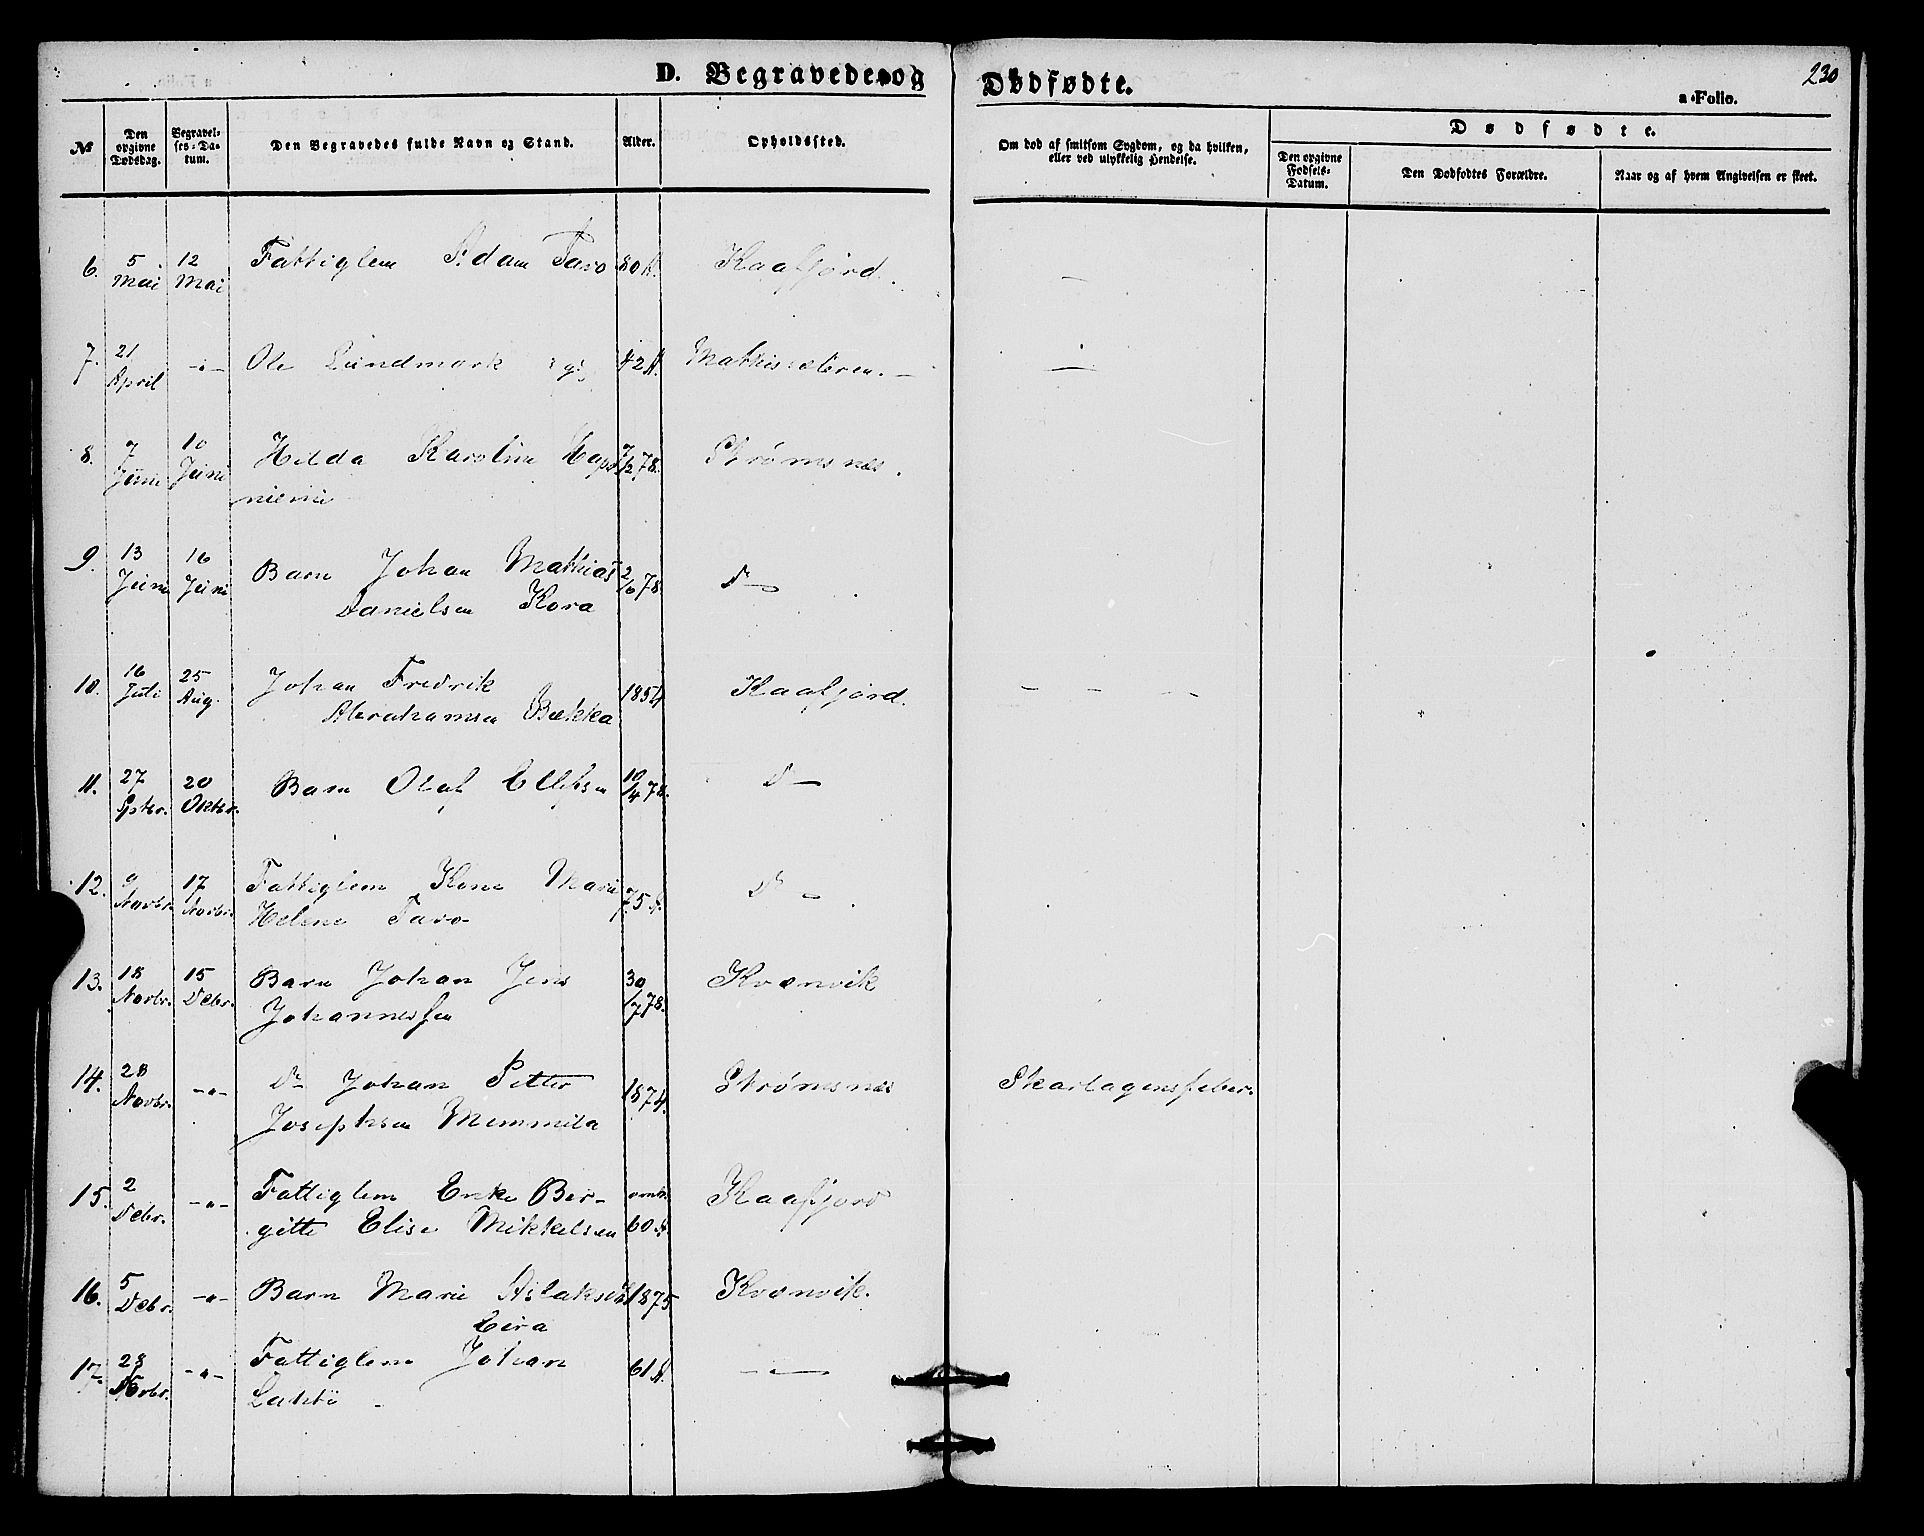 D. Begravede og Dødfødte.
230
a Folio.
№
Den opgivne Dødsdag.
Begravelses-Datum.
Den Begravedes fulde Navn og Stand.
Alder.
Opholdssted.
Om død af smitsom Sygdom, og da hvilken, eller ved ulykkelig Hendelse.
Dødfødte.
Den opgivne Fødsels-Datum.
Den Dødfødtes Forældre.
Naar og af hvem Angivelsen er skeet.
6. 5 Mai 12 Mai Fattiglem Adam Taro 80 A. Kaafjord. —
7. 21 April -"- Ole Lundmark 42 A. Mathisæleren. —
8. 7 Juni 10 Juni Hilda Karoline
niemi 7/2 78. Strømsnæs.
9. 13 Juni 16 Juni Barn Johan Mathias
Danielsen Kora 2/6 78. Do
10. 16 Juli 25 Aug. Johan Fredrik
Abrahamsen Bækka 1854 Kaafjord. — — —
11. 27 Sptbr. 20 Oktbr. Barn Olaf Ellefsen 10/4 78. Do
12. 9 Novbr. 17 Novbr. Fattiglem Kone Marie
Helene Taro 75 A. Do
13. 18 Novbr. 15 Debr. Barn Johan Jens
Johannessen 30/7 78. Kvænvik
14. 28 Novbr. -"- Do Johan Petter
Josephsen Mommila 1874. Strømsnæs Skarlagensfeber.
15. 2 Debr. -"- Fattiglem Enke Ber-
gitte Elise Mikkelsen omtr. 60 A. Kaafjord
16. 5 Debr. -"- Barn Marie Aslaksdtr
Eira 1875 Kvænvik.
17. 28 Novbr. -"- Fattiglem Johan
Lahti 61 A. -"-